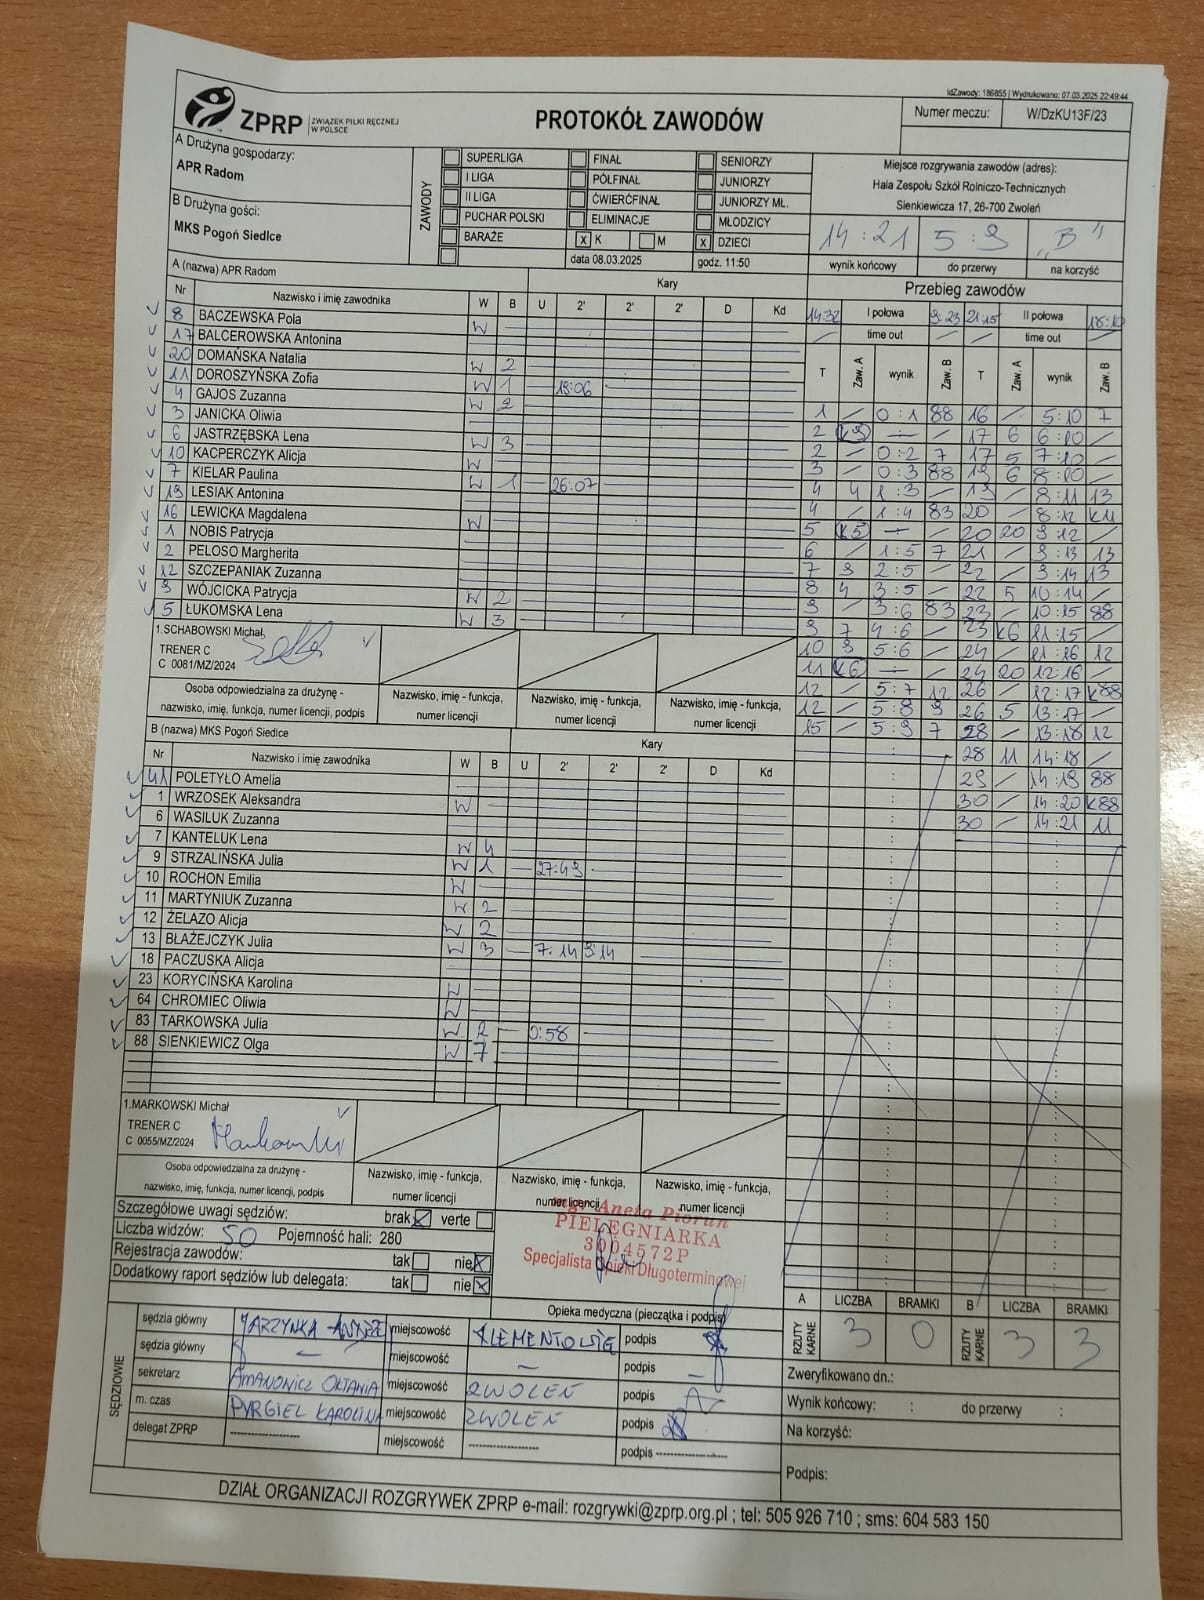 IdZawody: 186855 | Wydrukowano: 07.03.2025 22:49:44
ZPRP ZWIĄZEK PIŁKI RĘCZNEJ W POLSCE
PROTOKÓŁ ZAWODÓW
Numer meczu: W/DzKU13F/23
A Drużyna gospodarzy:
APR Radom
B Drużyna gości:
MKS Pogoń Siedlce
ZAWODY
SUPERLIGA FINAŁ SENIORZY
I LIGA PÓŁFINAŁ JUNIORZY
II LIGA ĆWIERĆFINAŁ JUNIORZY MŁ.
PUCHAR POLSKI ELIMINACJE MŁODZICY
BARAŻE x K M x DZIECI
data 08.03.2025 godz. 11:50
Miejsce rozgrywania zawodów (adres):
Hala Zespołu Szkół Rolniczo-Technicznych
Sienkiewicza 17, 26-700 Zwoleń
14:21 5:9 „B"
wynik końcowy do przerwy na korzyść
A (nazwa) APR Radom Kary
Nr Nazwisko i imię zawodnika W B U 2' 2' 2' D Kd
8 BACZEWSKA Pola W
17 BALCEROWSKA Antonina
20 DOMAŃSKA Natalia W 2
11 DOROSZYŃSKA Zofia W 1 18:06
4 GAJOS Zuzanna W 2
3 JANICKA Oliwia
6 JASTRZĘBSKA Lena W 3
10 KACPERCZYK Alicja W
7 KIELAR Paulina W 1 26:07
19 LESIAK Antonina
16 LEWICKA Magdalena W
1 NOBIS Patrycja
2 PELOSO Margherita
12 SZCZEPANIAK Zuzanna
9 WÓJCICKA Patrycja W 2
5 ŁUKOMSKA Lena W 3
1.SCHABOWSKI Michał
TRENER C
C 0081/MZ/2024
Osoba odpowiedzialna za drużynę - nazwisko, imię, funkcja, numer licencji, podpis
Nazwisko, imię - funkcja, numer licencji
Nazwisko, imię - funkcja, numer licencji
Nazwisko, imię - funkcja, numer licencji
B (nazwa) MKS Pogoń Siedlce Kary
Nr Nazwisko i imię zawodnika W B U 2' 2' 2' D Kd
41 POLETYŁO Amelia
1 WRZOSEK Aleksandra W
6 WASILUK Zuzanna
7 KANTELUK Lena W 4
9 STRZALIŃSKA Julia W 1 27:49
10 ROCHON Emilia W
11 MARTYNIUK Zuzanna W 2
12 ŻELAZO Alicja W 2
13 BŁAŻEJCZYK Julia W 3 7:14 9:14
18 PACZUSKA Alicja
23 KORYCIŃSKA Karolina W
64 CHROMIEC Oliwia W
83 TARKOWSKA Julia W 2 0:58
88 SIENKIEWICZ Olga W 7
1.MARKOWSKI Michał
TRENER C
C 0055/MZ/2024
Osoba odpowiedzialna za drużynę - nazwisko, imię, funkcja, numer licencji, podpis
Nazwisko, imię - funkcja, numer licencji
Nazwisko, imię - funkcja, numer licencji
Nazwisko, imię - funkcja, numer licencji
Przebieg zawodów
14:32 I połowa 9:23 21:15 II połowa 18:10
time out time out
T Zaw. A wynik Zaw. B T Zaw. A wynik Zaw. B
1 / 0:1 88 16 / 5:10 7
2 K9 — / 17 6 6:10 /
2 / 0:2 7 17 5 7:10 /
3 / 0:3 88 19 6 8:10 /
4 4 1:3 / 19 / 8:11 13
4 / 1:4 83 20 / 8:12 K11
5 K5 — / 20 20 9:12 /
6 / 1:5 7 21 / 9:13 13
7 9 2:5 / 22 / 9:14 13
8 4 3:5 / 22 5 10:14 /
9 / 3:6 83 23 / 10:15 88
9 7 4:6 / 23 K6 11:15 /
10 9 5:6 / 24 / 11:16 12
11 K6 — / 24 20 12:16 /
12 / 5:7 12 26 / 12:17 K88
12 / 5:8 9 26 5 13:17 /
15 / 5:9 7 28 / 13:18 12
28 11 14:18 /
29 / 14:19 88
30 / 14:20 K88
30 / 14:21 11
Szczegółowe uwagi sędziów: brak x verte
Liczba widzów: 50 Pojemność hali: 280
Rejestracja zawodów: tak nie x
Dodatkowy raport sędziów lub delegata: tak nie x
mgr Aneta Piorun
PIELĘGNIARKA
3004572P
Specjalista Opieki Długoterminowej
Opieka medyczna (pieczątka i podpis)
SĘDZIOWIE
sędzia główny JARZYNKA miejscowość KLEMENTOWIC podpis
sędzia główny — miejscowość — podpis —
sekretarz OKTAWIA miejscowość ZWOLEŃ podpis
m. czas PYRGIEL KAROLINA miejscowość ZWOLEŃ podpis
delegat ZPRP -------------------- miejscowość -------------------- podpis --------------------
A RZUTY KARNE LICZBA 3 BRAMKI 0
B RZUTY KARNE LICZBA 3 BRAMKI 3
Zweryfikowano dn.:
Wynik końcowy: : do przerwy :
Na korzyść:
Podpis:
DZIAŁ ORGANIZACJI ROZGRYWEK ZPRP e-mail: rozgrywki@zprp.org.pl ; tel: 505 926 710 ; sms: 604 583 150